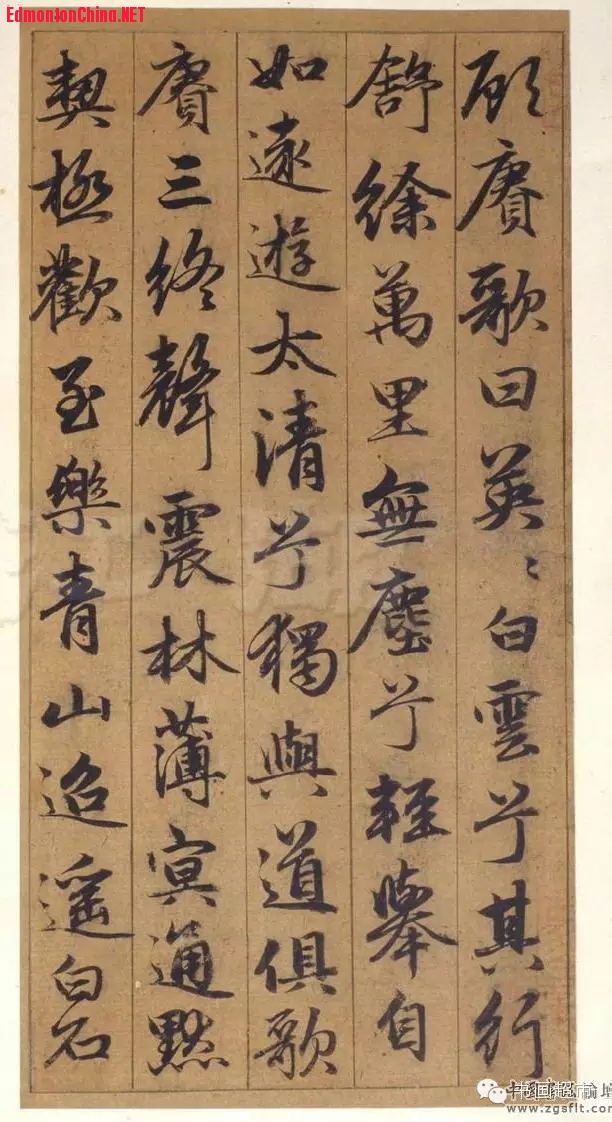 EdmontonChina.NET
顧賡歌曰英〻白雲兮其行
舒徐萬里無塵兮輕舉自
如遠遊太清兮獨與道俱歌
賡三終聲震林薄冥通黙
契極歡至樂青山迢遥白石
www.zgsflt.com